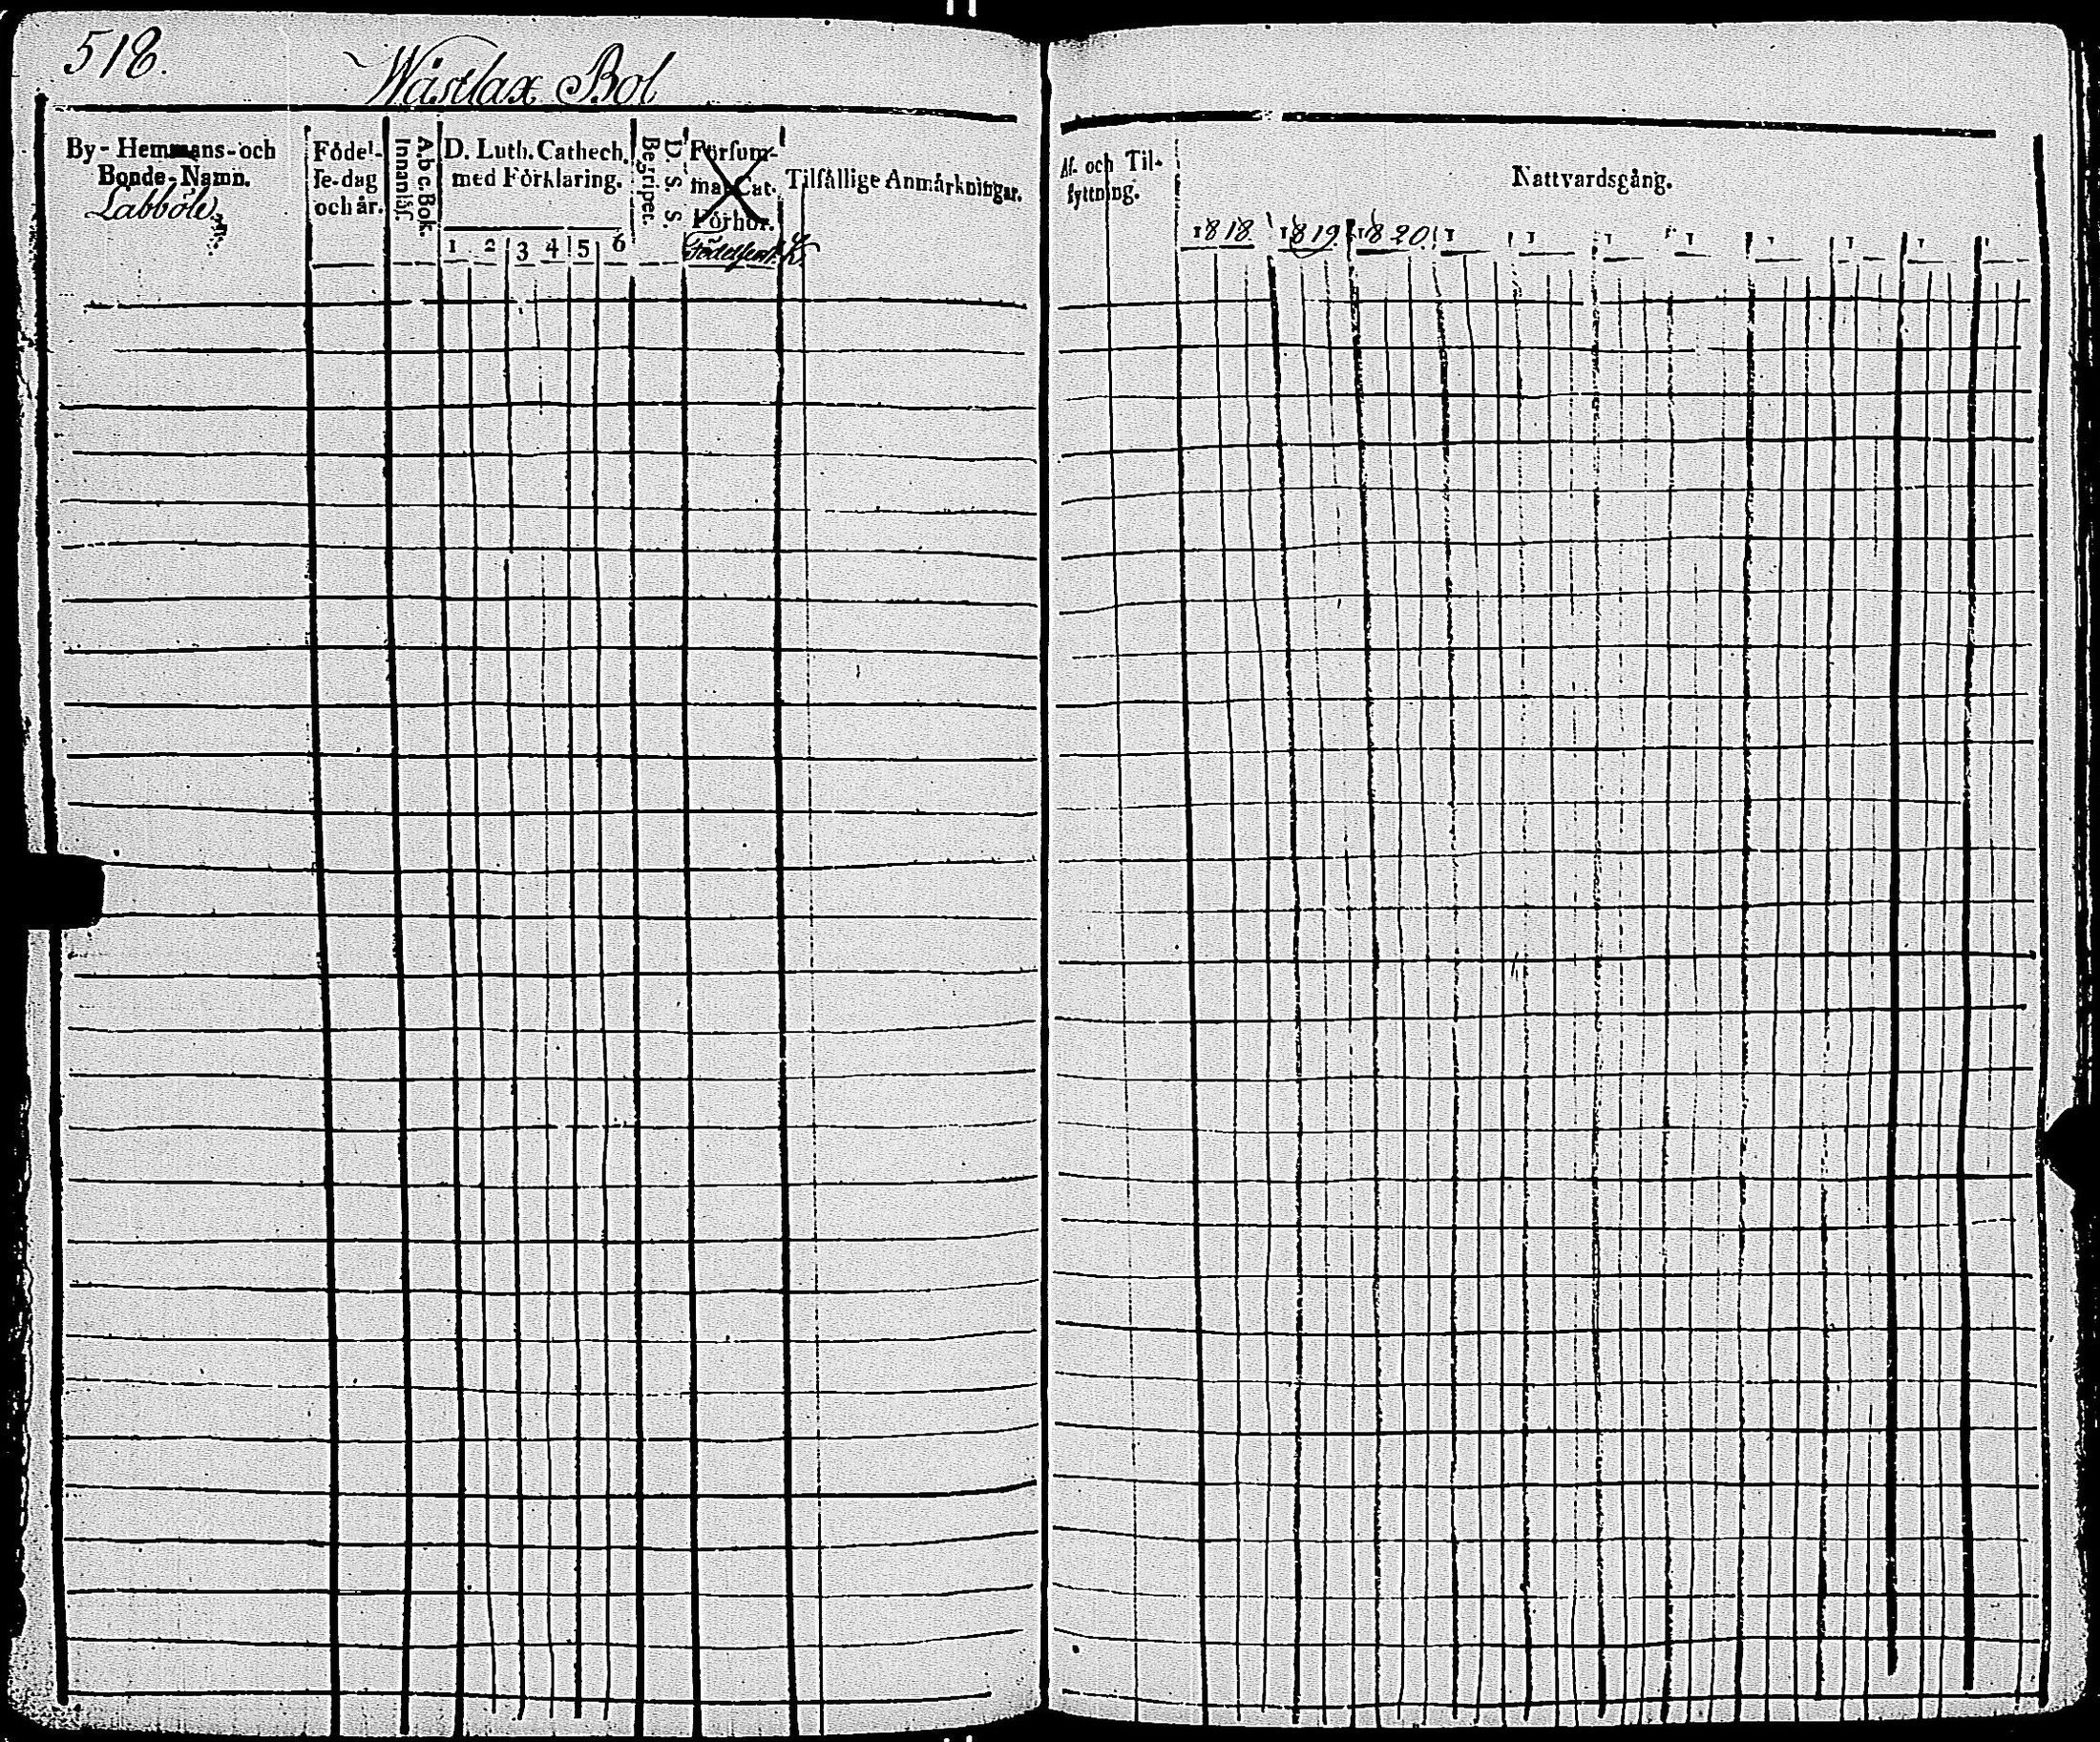 518.
Wästlax Bol
By- Hemmans- och
Bonde-Namn.
Labböle
Födel-
se-dag
och år.
A.b.c.Bok.
Innanläs.
D. Luth. Cathech.
med Förklaring.
1 2 3 4 5 6
D. S. S.
Begripet.
Försum-
mat Cat.
Förhör.
Tilfällige Anmärkningar.
Af- och Til-
flyttning.
Nattvardsgång.
1818. 1819. 1820. 1 1 1 1 1 1 1 1